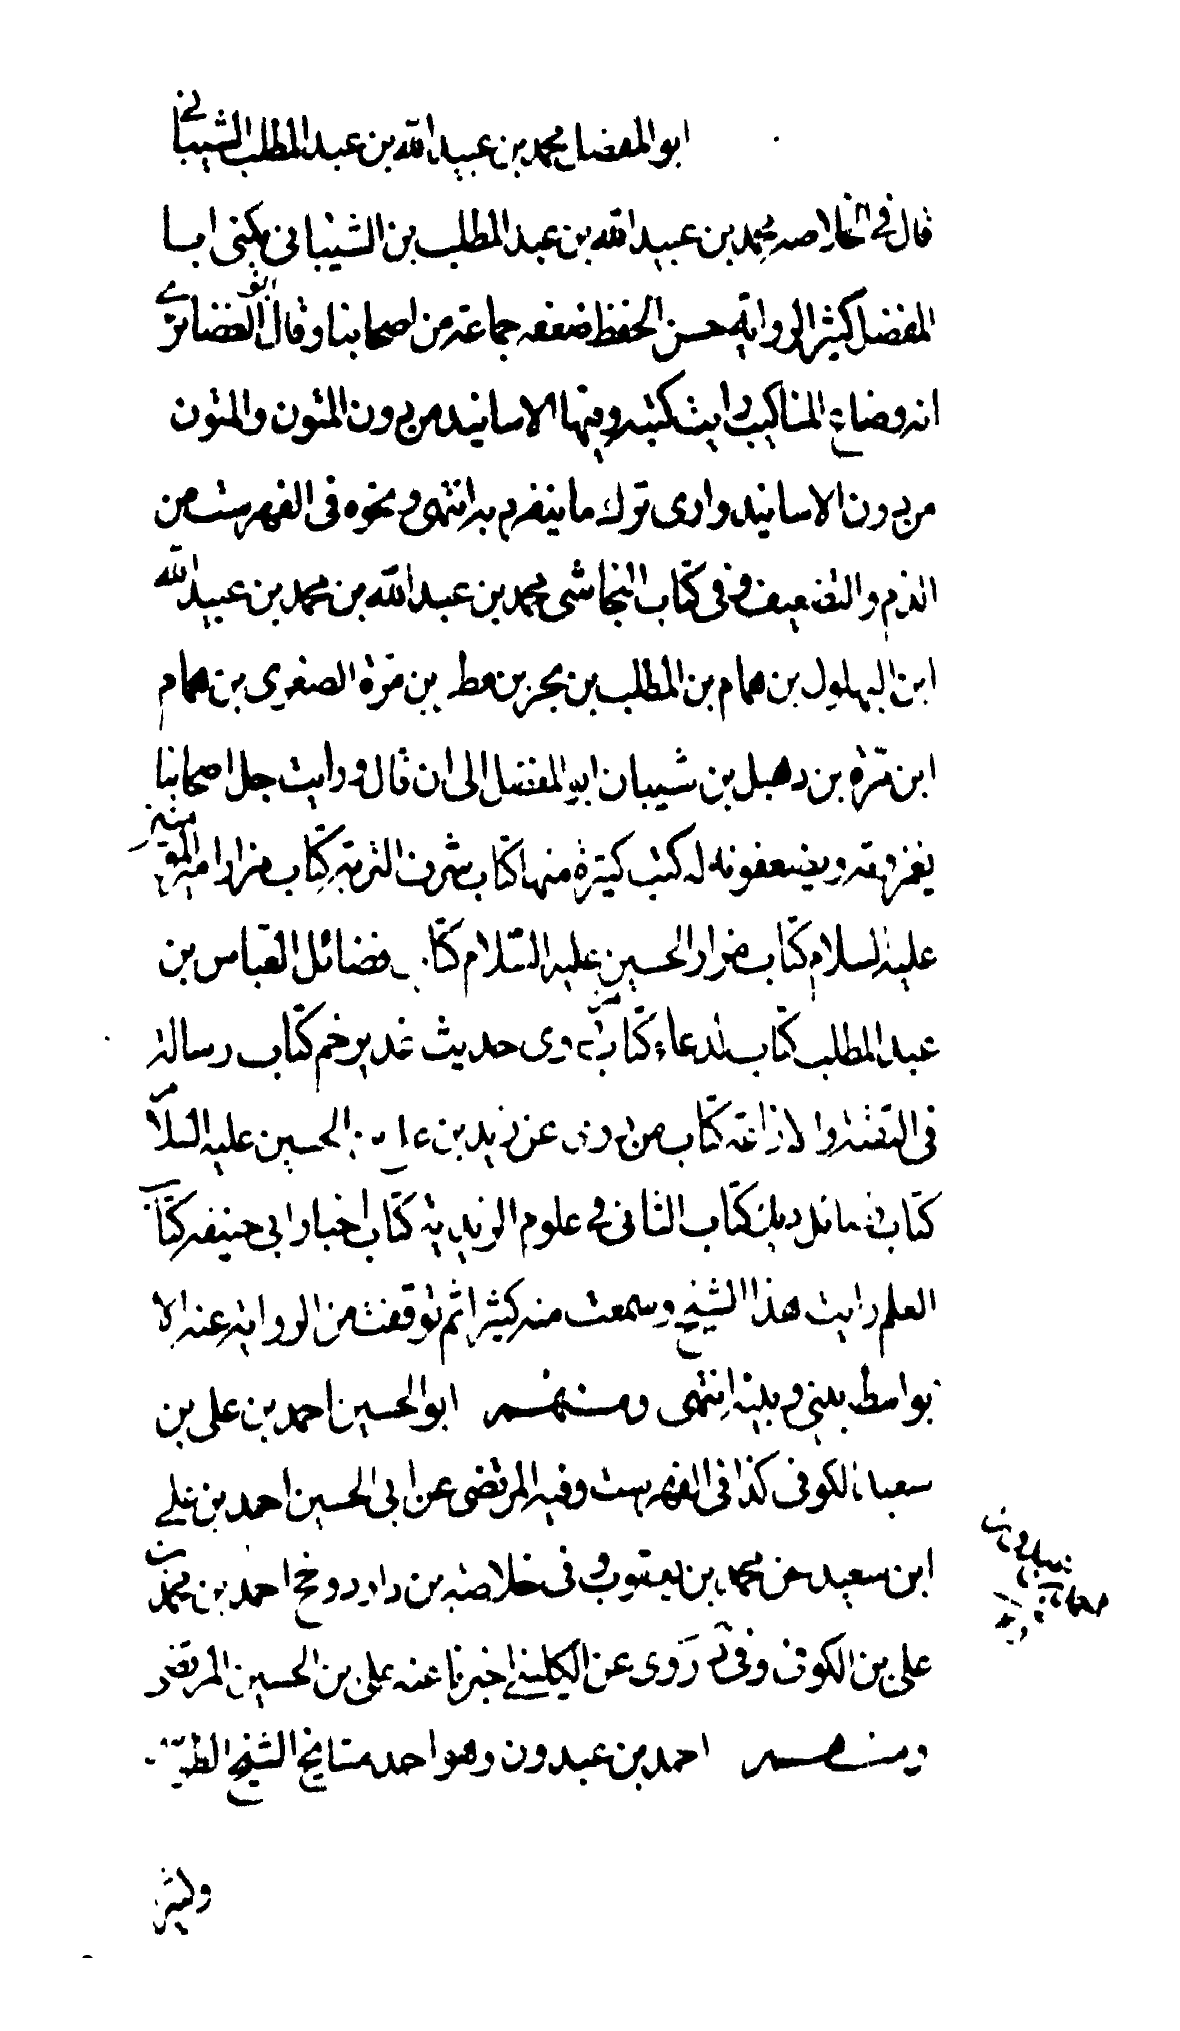 ابو المفضل محمد بن عبيد الله بن عبد المطلب الشيباني
قال في الخلاصه محمد بن عبيد الله بن عبد المطلب بن الشيباني يكنى ابا
المفضل كثير الروايه حسن الحفظ ضعفه جماعة من اصحابنا وقال ابن الغضائري
انه وضاع المناكير رايت كتبه وفيها الاسانيد من دون المتون والمتون
من دون الاسانيد وارى ترك ما ينفرد به انتهى ونحوه في الفهرست من
الذم والتضعيف وفي كتاب النجاشي محمد بن عبد الله بن محمد بن عبيد الله
ابن البهلول بن همام بن المطلب بن بحر بن مطر بن مرة الصغرى بن همام
ابن مرة بن دهبل بن شيبان ابو المفضل الى ان قال ورايت جل اصحابنا
يغمزونه ويضعفونه له كتب كثيرة منها كتاب شرف التربة كتاب مزار امير المؤمنين
عليه السلام كتاب مزار الحسين عليه السلام كتاب فضائل العباس بن
عبد المطلب كتاب الدعاء كتاب من روى حديث غدير خم كتاب رسالة
في التقية والاذاعة كتاب من روى عن زيد بن علي بن الحسين عليه السلام
كتاب فضائل زيد كتاب الثاني في علوم الزيدية كتاب اخبار ابي حنيفه كتاب
العلم رايت هذا الشيخ وسمعت منه كثيرا ثم توقفت من الروايه عنه الا
بواسطة بيني وبينه انتهى ومنهم ابو الحسين احمد بن علي بن
سعيد الكوفي كذا في الفهرست وفيه المرتضى عن ابي الحسين احمد بن علي
ابن سعيد عن محمد بن يعقوب وفي خلاصة بن داود وخ احمد بن محمد بن
علي بن الكوفي وفي لم روى عن الكليني اخبرنا عنه علي بن الحسين المرتضى
ومنهم احمد بن عبدون وهو احد مشايخ الشيخ